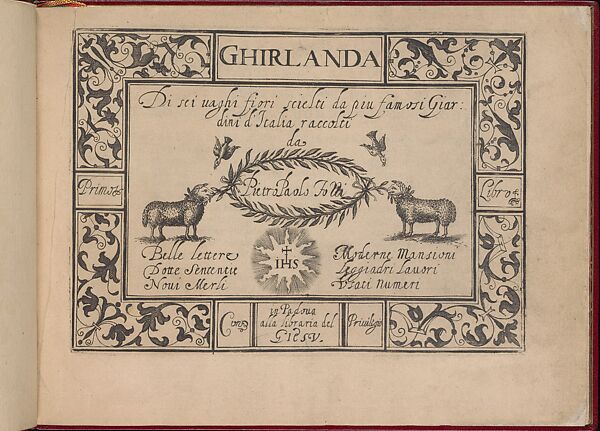 GHIRLANDA
Di sei uaghi fiori scielti da piu famosi Giar:
dini d'Italia raccolti
da
Pietro Paolo Tozzi
Primo
Libro
Belle lettere
Dotte Sentenze
Noui Merli
IHS
Moderne Mansioni
Leggiadri Lauori
Vsati Numeri
Con
in Padoua
alla libraria del
GIESV.
Priuilegio